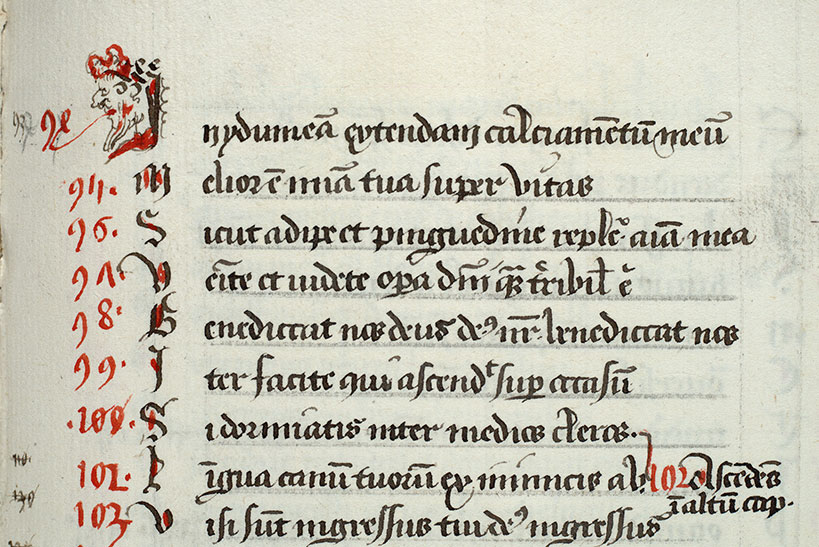 94 In ydumeā extendam calciamentū meū
95. Melior ē mīa tua super vitas
96. Sicut adipe et pinguedine repleʳ aīa mea
97. Venīte et uidete opa dnī qm̄ tribil ē
98. Benediccat nos deus deꝰ nr̄ benediccat nos
99. Iter facite qui ascendᵗ sup occasū
.100. Si dormiatis inter medios cleros.
101. Līgua canū tuorū ex inimicis ab 102. Ascēdēs ī altū cap.
103. Visi sūt ingressus tui deꝰ ingressus